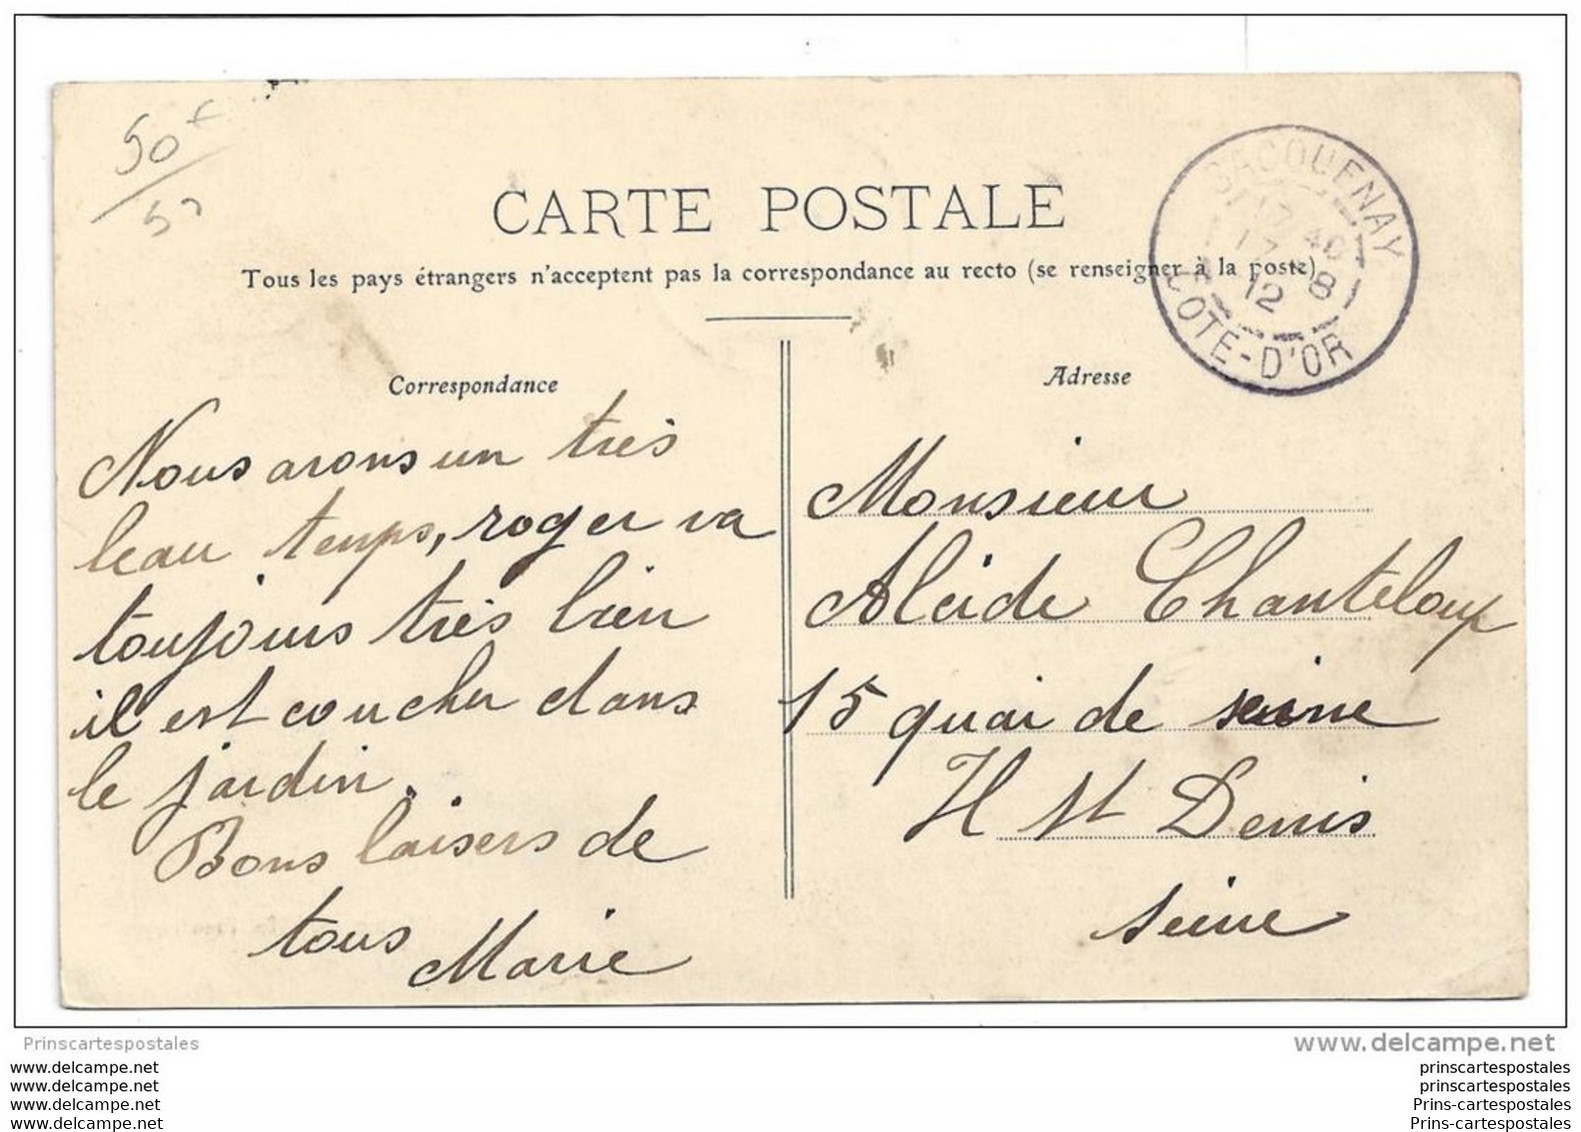 50
CARTE POSTALE
Tous les pays étrangers n'acceptent pas la correspondance au recto (se renseigner à la poste)
SACQUENAY
12 8
COTE-D'OR
Correspondance
Nous avons un très
beau temps, roger va
toujours très bien
il est coucher dans
le jardin.
Bons baisers de
tous Marie
Adresse
Monsieur
Alcide Chanteloup
15 quai de seine
St Denis
seine
Prinscartespostales
www.delcampe.net
www.delcampe.net
www.delcampe.net
www.delcampe.net
www.delcampe.net
prinscartespostales
prinscartespostales
Prins-cartespostales
Prins-cartespostales